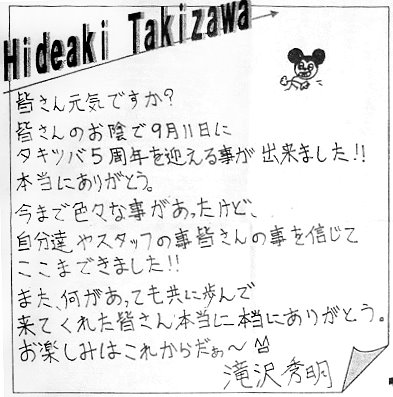 Hideaki Takizawa
皆さん元気ですか?
皆さんのお陰で9月11日に
タキツバ5周年を迎える事が出来ました!!
本当にありがとう。
今まで色々な事があったけど、
自分達やスタッフの事皆さんの事を信じて
ここまできました!!
また、何があっても共に歩んで
来てくれた皆さん本当に本当にありがとう。
お楽しみはこれからだぁ〜
滝沢秀明